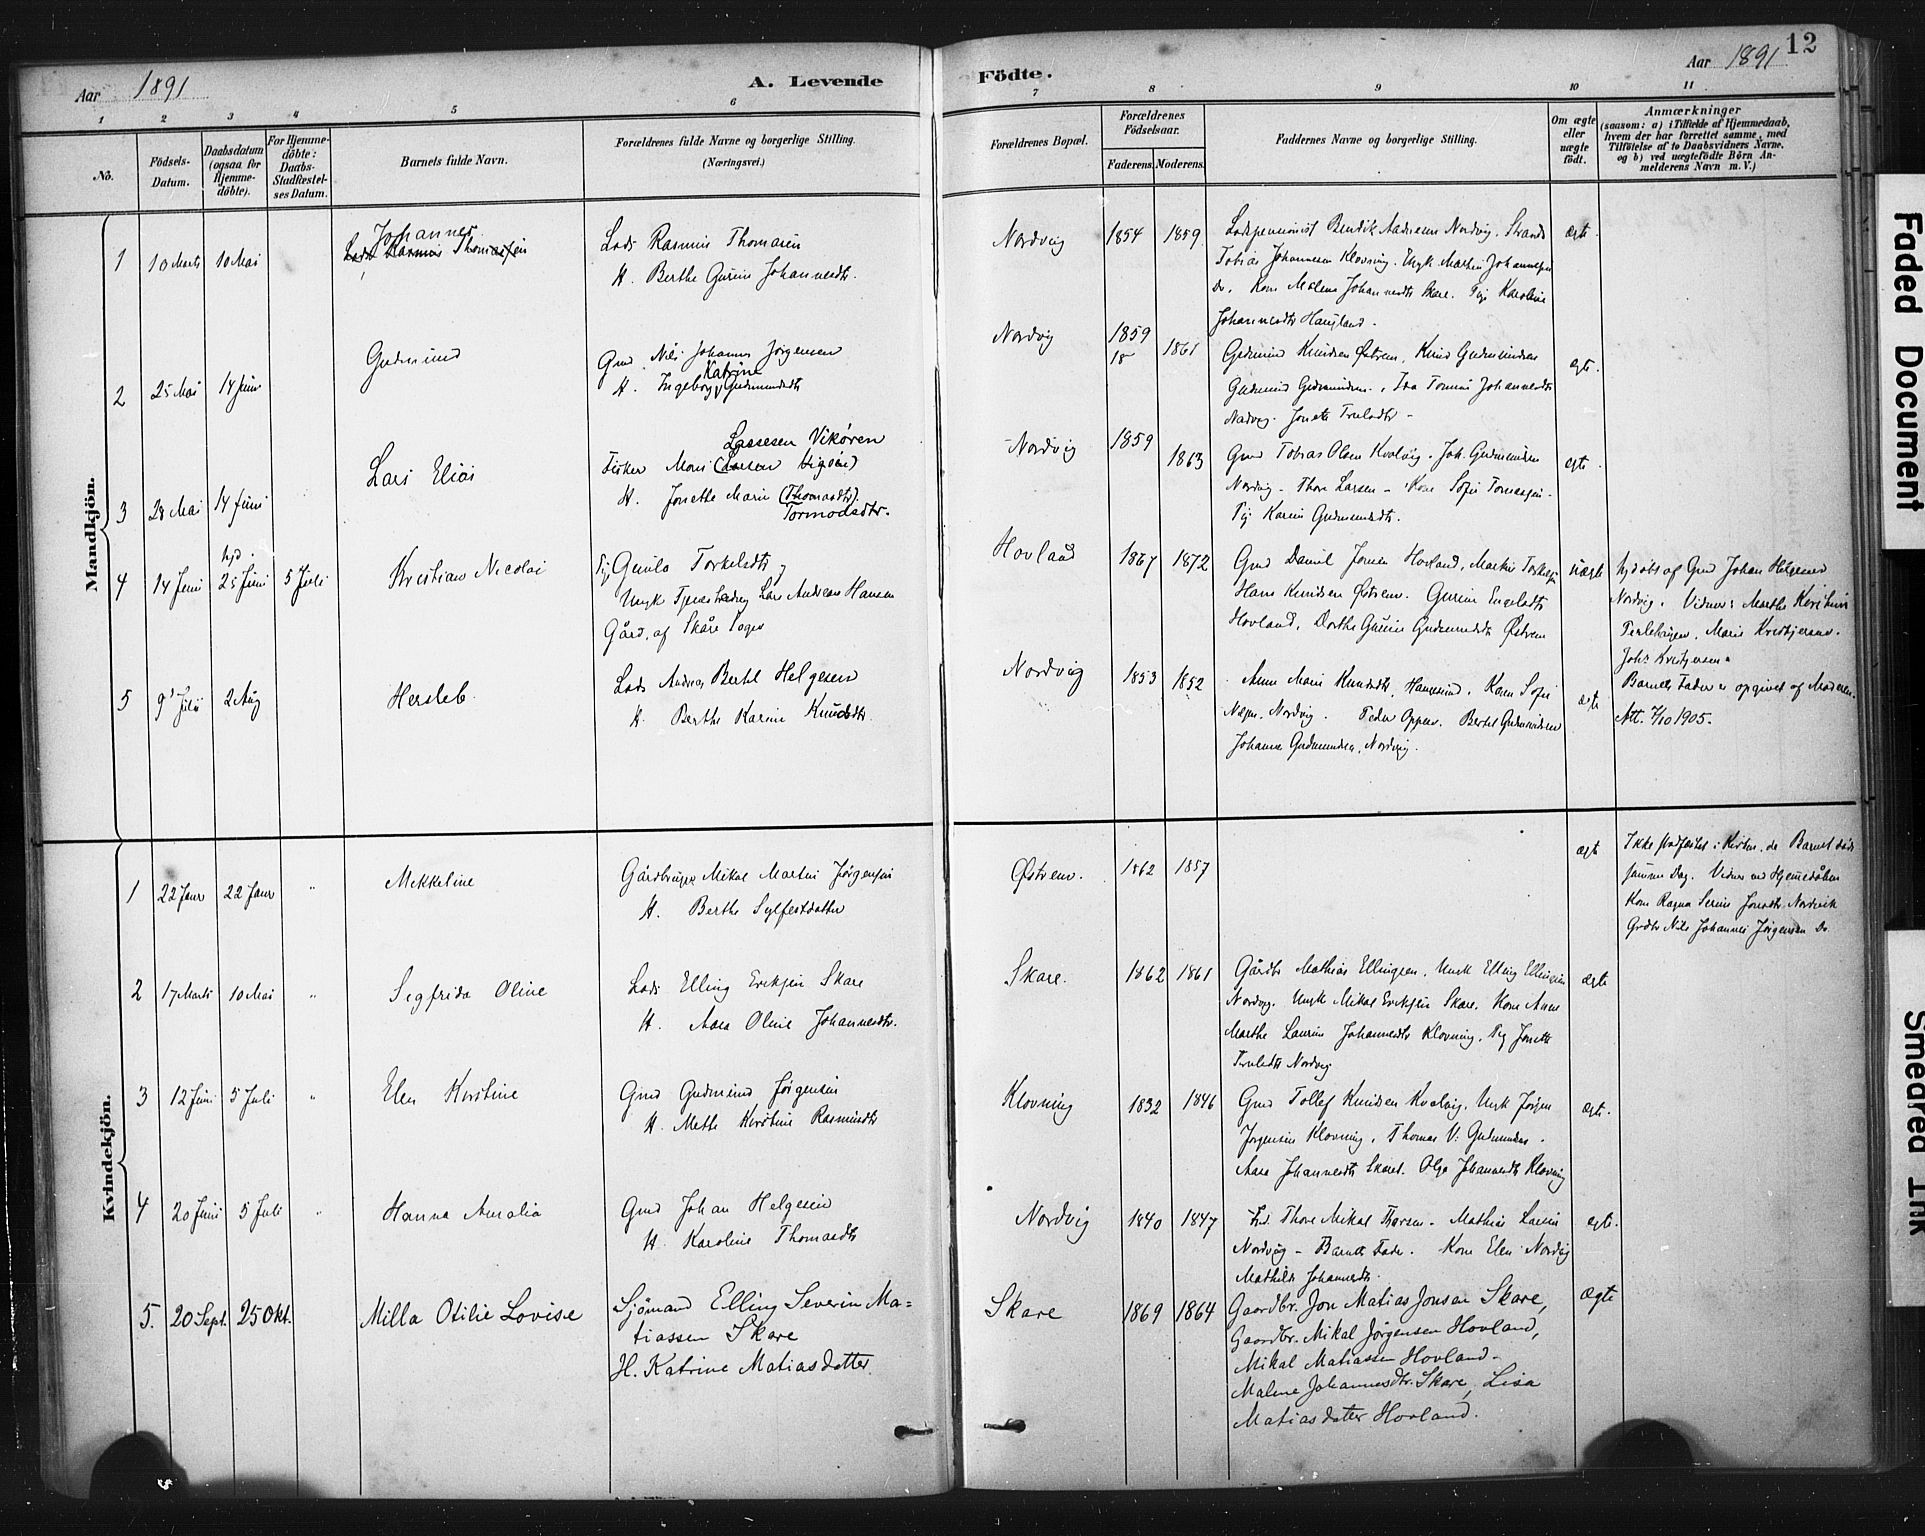 Aar 1891
A. Levende
Födte.
Aar 1891
12
1 2 3 4 5 6 7 8 9 10 11
No.
Födsels-
Datum.
Daabsdatum
(ogsaa for
Hjemme-
döbte).
For Hjemme-
döbte:
Daabs-
Stadfæstel-
ses Datum.
Barnets fulde Navn.
Forældrenes fulde Navne og borgerlige Stilling.
(Næringsvei.)
Forældrenes Bopæl.
Forældrenes
Födselsaar.
Faderens. Moderens.
Faddernes Navne og borgerlige Stilling.
Om ægte
eller
uægte
födt.
Anmærkninger
(saasom: a) i Tilfælde af Hjemmedaab,
hvem der har forrettet samme, med
Tilföielse af to Daabsvidners Navne.
og b) ved uægtefödte Börn An-
melderens Navn m. V.)
Mandkjön.
1 10 Marts 10 Mai
Johannes
Rasmus Thomassen
Lods Rasmus Thomasen
H. Berthe Gurine Johannesdtr.
Nordvig 1854 1859
Lodspensionist Bendik Nordvig.
Tobias Johannesen Klovning. Ungk Martin Johannesen
Do. Kone Malene Johannesdtr Skare. Pige Karoline
Johannesdtr Haugland.
ægte.
2 25 Mai 14 Juni
Gudmund
Gmd. Nils Johannes Jørgensen
Katrine
H. Ingeborg Gudmundsdt
Nordvig 1859
18 1861
Gudmund Knudsen Østrem, Knud Gudmundsen
Gudmund Gudmundsen. Johannesdtr
Nordvig. Jonette Trulsdtr -
ægte.
3 28 Mai 14 Juni
Lars Elias
Lassesen Vikøren
Fisker Mons (Larsen)
H. Jonette Marie (Thomasdtr).
Tormodsdtr.
Nordvig 1859 1863
Gmd Tobias Olsen Kvalvig. Joh. Gudmundsen
Nordvig - Thore Larsen - Kone Sofie
Pig Karen Gudmundsdtr.
ægte.
4 14 Juni
hjd.
25 Juni 5 Juli
Kristian Nicolai
Pig Gunla Torkelsdtr
Ungk Lars Andreas Hansen
Gård, af Skåre Sogn
Hovland 1867 1872
Gmd Daniel Jonsen Hovland, Martin Torkelsen
Hans Knudsen Østrem. Gurine Engelsdtr
Hovland, Dorthe Gurine Gudmundsdtr Østrem
uægte
hjdøbt af Gmd Johan Helgesen
Nordvig. Vidner: Marthe Kristine
Marie
Johs
Barnets Fader er opgivet af Moderen.
Att. 7/10 1905.
5 9 Juli 2 Aug
Hersleb.
Lods Andreas Bertel Helgesen
H. Berthe Karine Knudsdtr.
Nordvig 1853 1852
Anne Marie Knudsdtr, Kone Sofie
Nordvig. Peder Bertel Gudmundsen
Johannes Gudmundsen, Nordvig.
ægte
Kvindekjön.
1 22 Janr 22 Janr "
Mikkeline
Gårdbruger Mikal Martin Jørgensen
H. Berthe Sylfestdatter
Østrem. 1862 1857
ægte
Ikke stadfæstet i Kirken, da Barnet døde
samme Dag. Vidner ved Hjemmedåben
Kone Ragna Serine Nordvik
Grdbr Nils Johannes Jørgensen Do.
2 17 Marts 10 Mai "
Segfrida Oline
Lods Elling Eriksen Skare
H. Aasa Oline Johannesdtr.
Skare. 1862 1861
Gårdbr Mathias Ellingsen, Ungk Elling Ellingsen
Nordvig. Ungk Mikal Eriksen Skare. Kone Anne
Marthe Laurine Johannesdtr Klovning. Pig Jonette
Trulsdtr Nordvig
ægte
3 12 Juni 5 Juli "
Elen Kristine
Gmd Gudmund Jørgensen
H. Mette Kristine Rasmusdtr
Klovning 1832 1846
Gmd Tollef Knudsen Kvalvig. Ungk Jørgen
Jørgensen Klovning. Thomas V. Gudmundsen.
Aasa Johannesdtr Skare. Olga Johannesdtr Klovning
ægte.
4 20 Juni 5 Juli "
Hanna Amalia
Gmd Johan Helgesen
H. Karoline Thomasdtr
Nordvig 1840 1847
Thore Mikal Mathias Larsen
Nordvig - Barnets Fader. Kone Elen Nordvig
Mathilde Johannesdtr.
ægte.
5. 20 Sept. 25 Okt.
Milla Otilie Lovise
Sjömand Elling Severin Ma-
tiassen Skare
H. Katrine Matiasdatter.
Skare 1869 1864
Gaardbr. Jon Matias Jonsen Skare,
Gaardbr. Mikal Jørgensen Hovland,
Mikal Matiassen Hovland -
Malene Johannesdtr. Skare, Lisa
Matiasdatter Hovland.
ægte
Faded Document
Smeared Ink